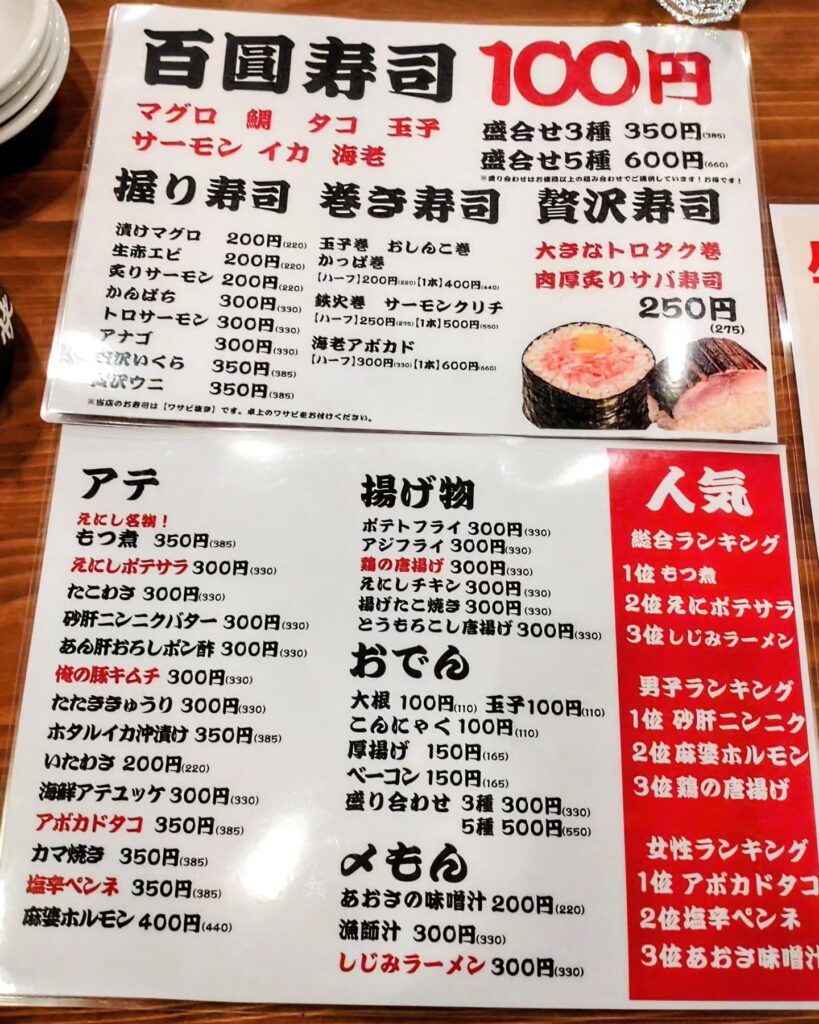 百圓寿司 100円
マグロ 鯛 タコ 玉子
サーモン イカ 海老
盛合せ3種 350円(385)
盛合せ5種 600円(660)
※盛り合わせはお値段以上の組み合わせでご提供しています！お得です！
握り寿司
漬けマグロ 200円(220)
生赤エビ 200円(220)
炙りサーモン 200円(220)
かんぱち 300円(330)
トロサーモン 300円(330)
アナゴ 300円(330)
沢いくら 350円(385)
沢ウニ 350円(385)
※当店のお寿司は【ワサビ抜き】です。卓上のワサビをお付けください。
巻き寿司
玉子巻 おしんこ巻
かっぱ巻
【ハーフ】200円(220)【1本】400円(440)
鉄火巻 サーモンクリチ
【ハーフ】250円(275)【1本】500円(550)
海老アボカド
【ハーフ】300円(330)【1本】600円(660)
贅沢寿司
大きなトロタク巻
肉厚炙りサバ寿司
250円
(275)
アテ
えにし名物！
もつ煮 350円(385)
えにしポテサラ 300円(330)
たこわさ 300円(330)
砂肝ニンニクバター 300円(330)
あん肝おろしポン酢 300円(330)
俺の豚キムチ 300円(330)
たたききゅうり 300円(330)
ホタルイカ沖漬け 350円(385)
いたわさ 200円(220)
海鮮アテユッケ 300円(330)
アボカドタコ 350円(385)
カマ焼き 350円(385)
塩辛ペンネ 350円(385)
麻婆ホルモン 400円(440)
揚げ物
ポテトフライ 300円(330)
アジフライ 300円(330)
鶏の唐揚げ 300円(330)
えにしチキン 300円(330)
揚げたこ焼き 300円(330)
とうもろこし唐揚げ 300円(330)
おでん
大根 100円(110) 玉子100円(110)
こんにゃく 100円(110)
厚揚げ 150円(165)
ベーコン 150円(165)
盛り合わせ 3種 300円(330)
5種 500円(550)
〆もん
あおさの味噌汁 200円(220)
漁師汁 300円(330)
しじみラーメン 300円(330)
人気
総合ランキング
1位 もつ煮
2位 えにポテサラ
3位 しじみラーメン
男子ランキング
1位 砂肝ニンニク
2位 麻婆ホルモン
3位 鶏の唐揚げ
女性ランキング
1位 アボカドタコ
2位 塩辛ペンネ
3位 あおさ味噌汁